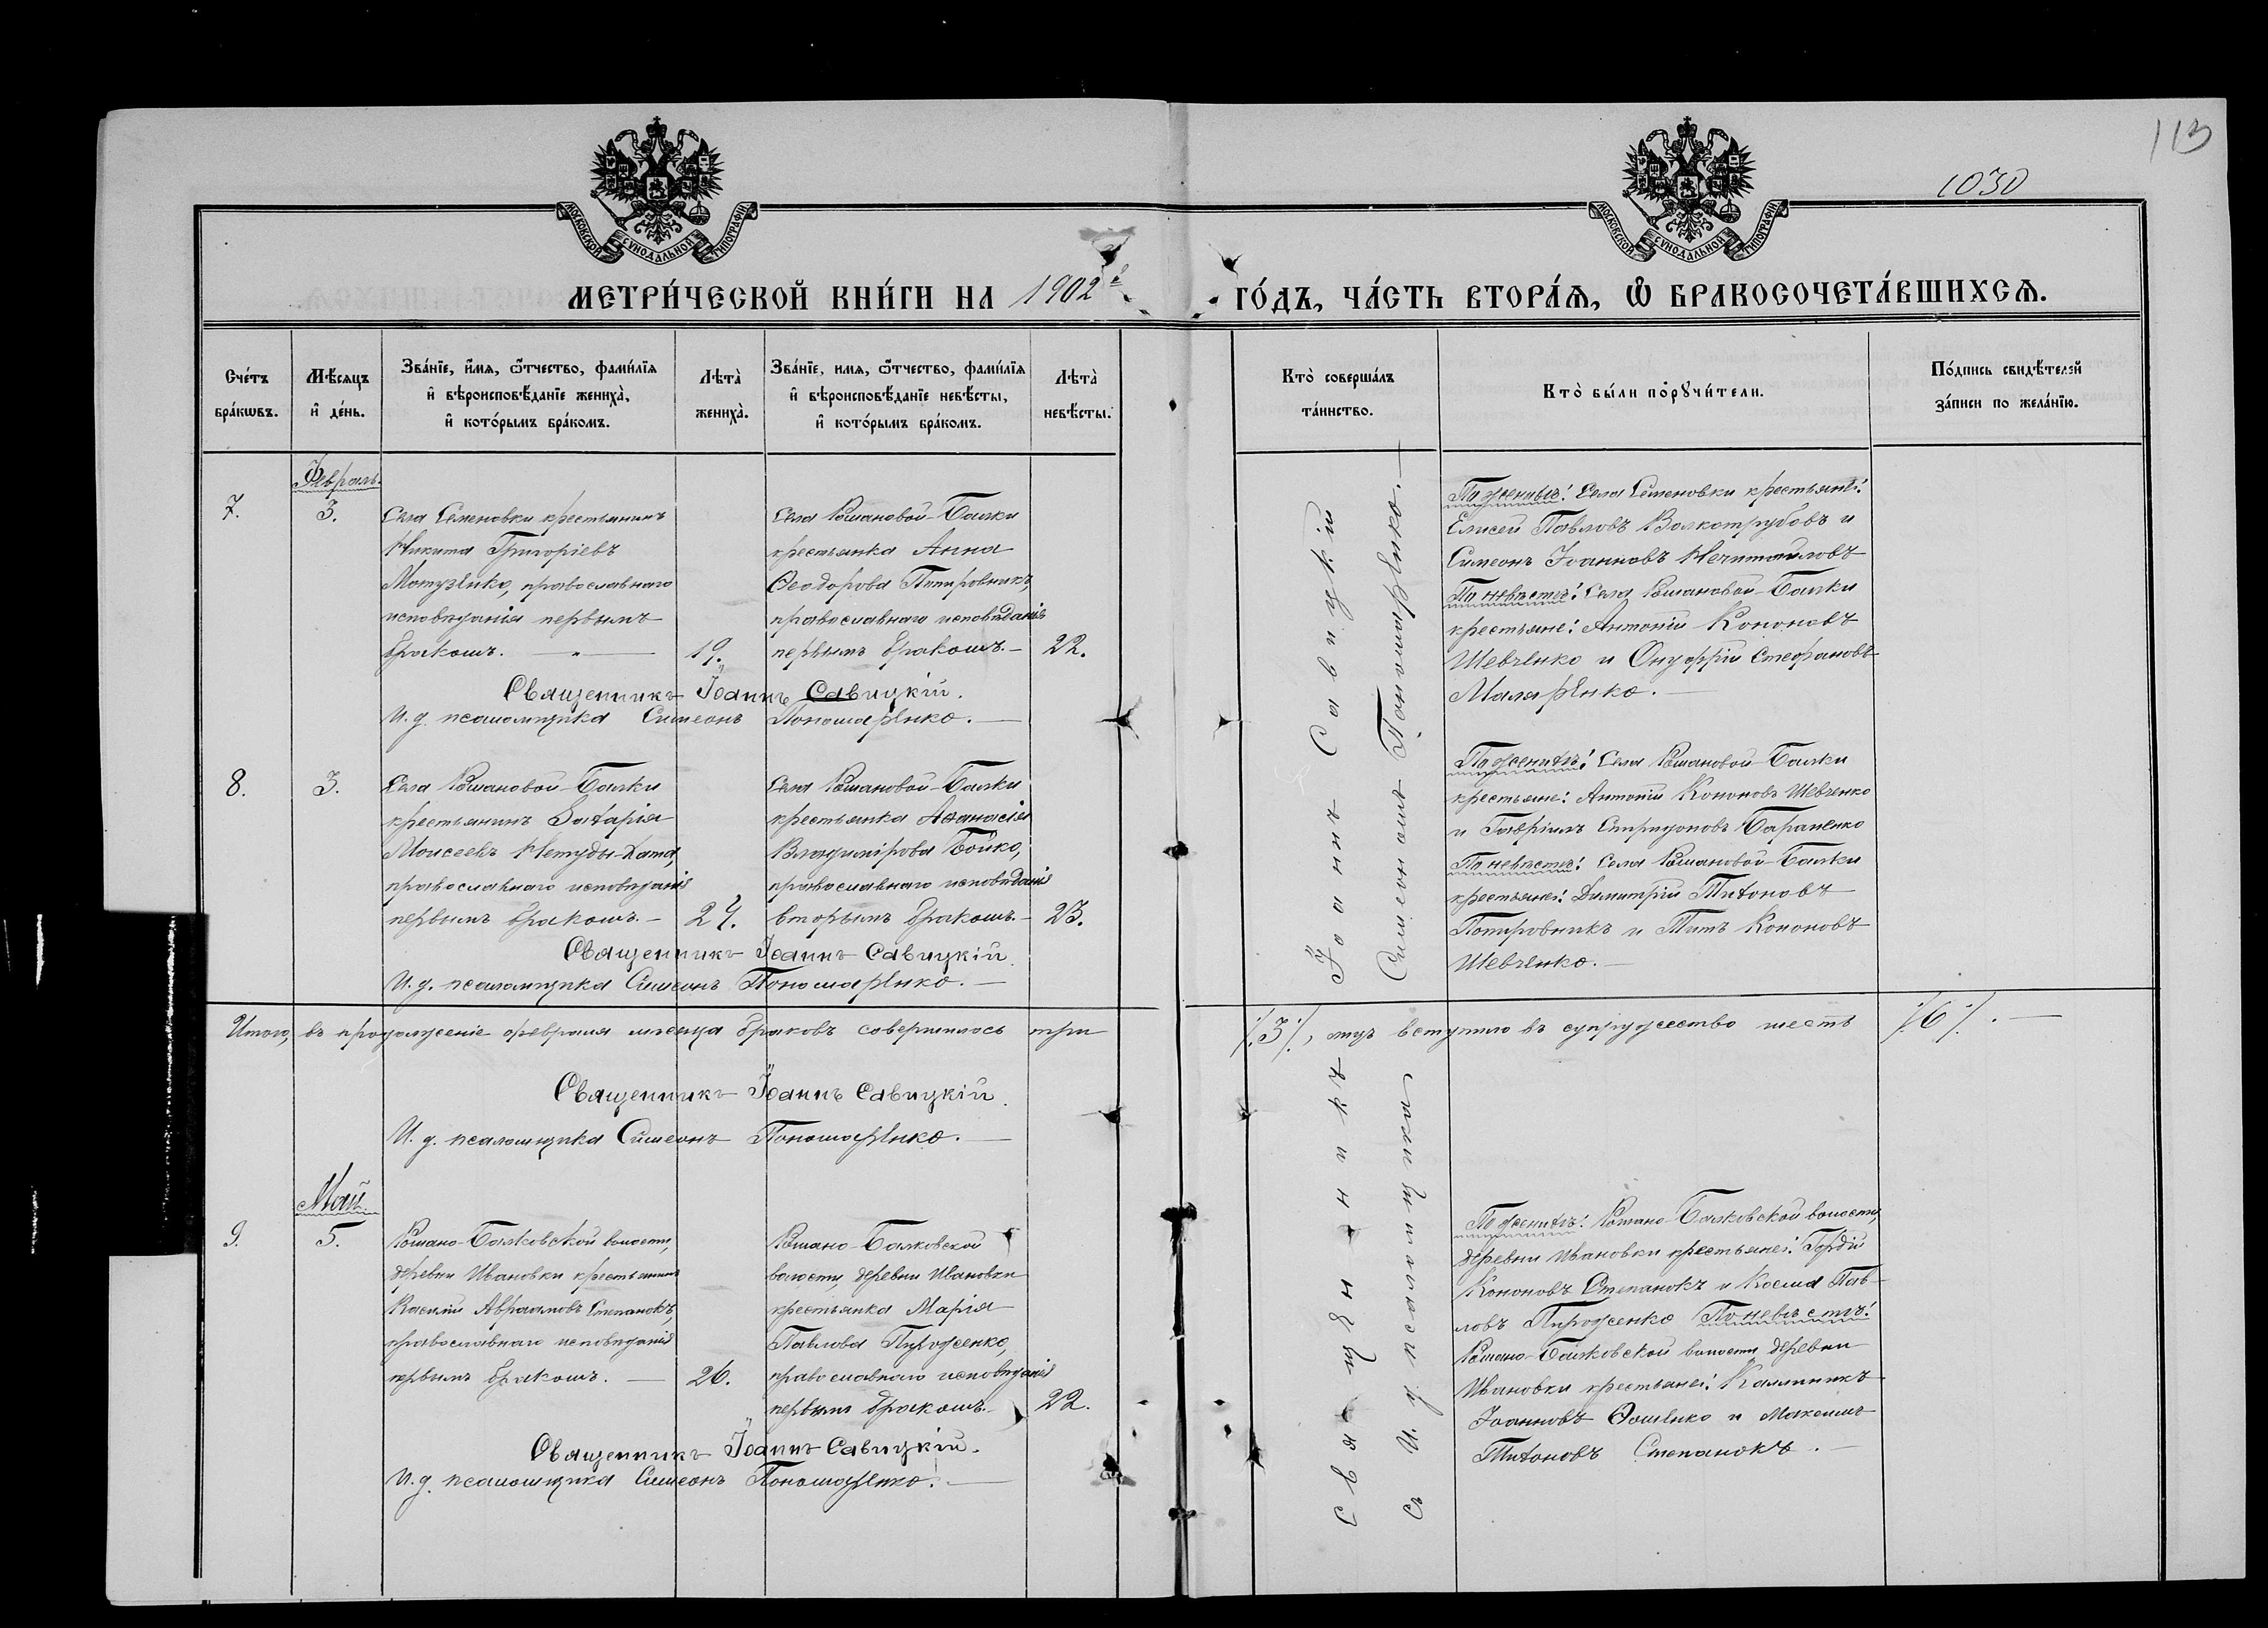 113
1030
МОСКОВСКОЙ СѴНОДАЛЬНОЙ ТИПОГРАФІИ
МОСКОВСКОЙ СѴНОДАЛЬНОЙ ТИПОГРАФІИ
МЕТРИ́ЧЕСКОЙ КНИ́ГИ НА 1902й ГО́ДЪ, ЧА́СТЬ ВТОРА́Ѧ, Ѽ БРАКОСОЧЕТА́ВШИХСѦ.
Сче́тъ бра́кωвъ.
Мѣ́сяцъ и҆ де́нь.
Зва́нїе, и҆́мя, ѿтчество, фами́лїя
и҆ вѣроисповѣ́данїе жениха̀,
и҆ кото́рымъ бра́комъ.
Лѣта̀ жениха̀.
Зва́нїе, имя, ѿтчество, фами́лїя
и҆ вѣроисповѣ́данїе невѣ́сты,
и҆ кото́рымъ бра́комъ.
Лѣта̀ невѣ́сты.
Кто̀ соверша́лъ та́инство.
Кто̀ бы́ли порꙋчи́тели.
По́дпись свидѣ́телей за́писи по жела́нїю.
Февраль.
7.
3.
Села Семеновки крестьянинъ
Никита Григоріевъ
Мотузенко, православнаго
исповѣданія первымъ
бракомъ. — „ —
19.
Села Романовой-Балки
крестьянка Анна
Ѳеодорова Потировникъ,
православнаго исповѣданія
первымъ бракомъ. —
22.
Священникъ Іоаннъ Савицкій.
И. д. псаломщика Симеонъ Пономаренко. —
По женихѣ: Села Семеновки крестьяне:
Елисей Павловъ Волкотрубовъ и
Симеонъ Іоанновъ Нечитайловъ
По невѣстѣ: Села Романовой-Балки
крестьяне: Антоній Кононовъ
Шевченко и Онуфрій Стефановъ
Маляренко. —
8.
3.
Села Романовой-Балки
крестьянинъ Захарія
Моисеевъ Нетуды-Хата,
православнаго исповѣданія
первымъ бракомъ. —
24.
Села Романовой-Балки
крестьянка Аѳанасія
Владимірова Бойко,
православнаго исповѣданія
вторымъ бракомъ. —
23.
Священникъ Іоаннъ Савицкій.
И. д. псаломщика Симеонъ Пономаренко. —
По женихѣ: Села Романовой-Балки
крестьяне: Антоній Кононовъ Шевченко
и Гавріилъ Спиридоновъ Бараненко
По невѣстѣ: Села Романовой-Балки
крестьяне: Димитрій Тихоновъ
Потировникъ и Титъ Кононовъ
Шевченко. —
Итого, въ продолженіе февраля мѣсяца браковъ совершилось три /.3/., лицъ вступило въ супружество шесть /.6/. —
Священникъ Іоаннъ Савицкій.
И. д. псаломщика Симеонъ Пономаренко. —
Май.
9.
5.
Романо-Балковской волости,
деревни Ивановки крестьянинъ
Василій Авраамовъ Степанокъ,
православнаго исповѣданія
первымъ бракомъ. —
26.
Романо-Балковской
волости, деревни Ивановки
крестьянка Марія
Павлова Пироженко,
православнаго исповѣданія
первымъ бракомъ.
22.
Священникъ Іоаннъ Савицкій.
И. д. псаломщика Симеонъ Пономаренко. —
По женихѣ: Романо-Балковской волости,
деревни Ивановки крестьяне: Гордій
Кононовъ Степанокъ и Косма Пав-
ловъ Пироженко По невѣстѣ:
Романо-Балковской волости деревни
Ивановки крестьяне: Каллиникъ
Іоанновъ Ѳоменко и Максимъ
Тихоновъ Степанокъ. —
Священникъ Іоаннъ Савицкій
съ И. д. псаломщика Симеономъ Пономаренко. —